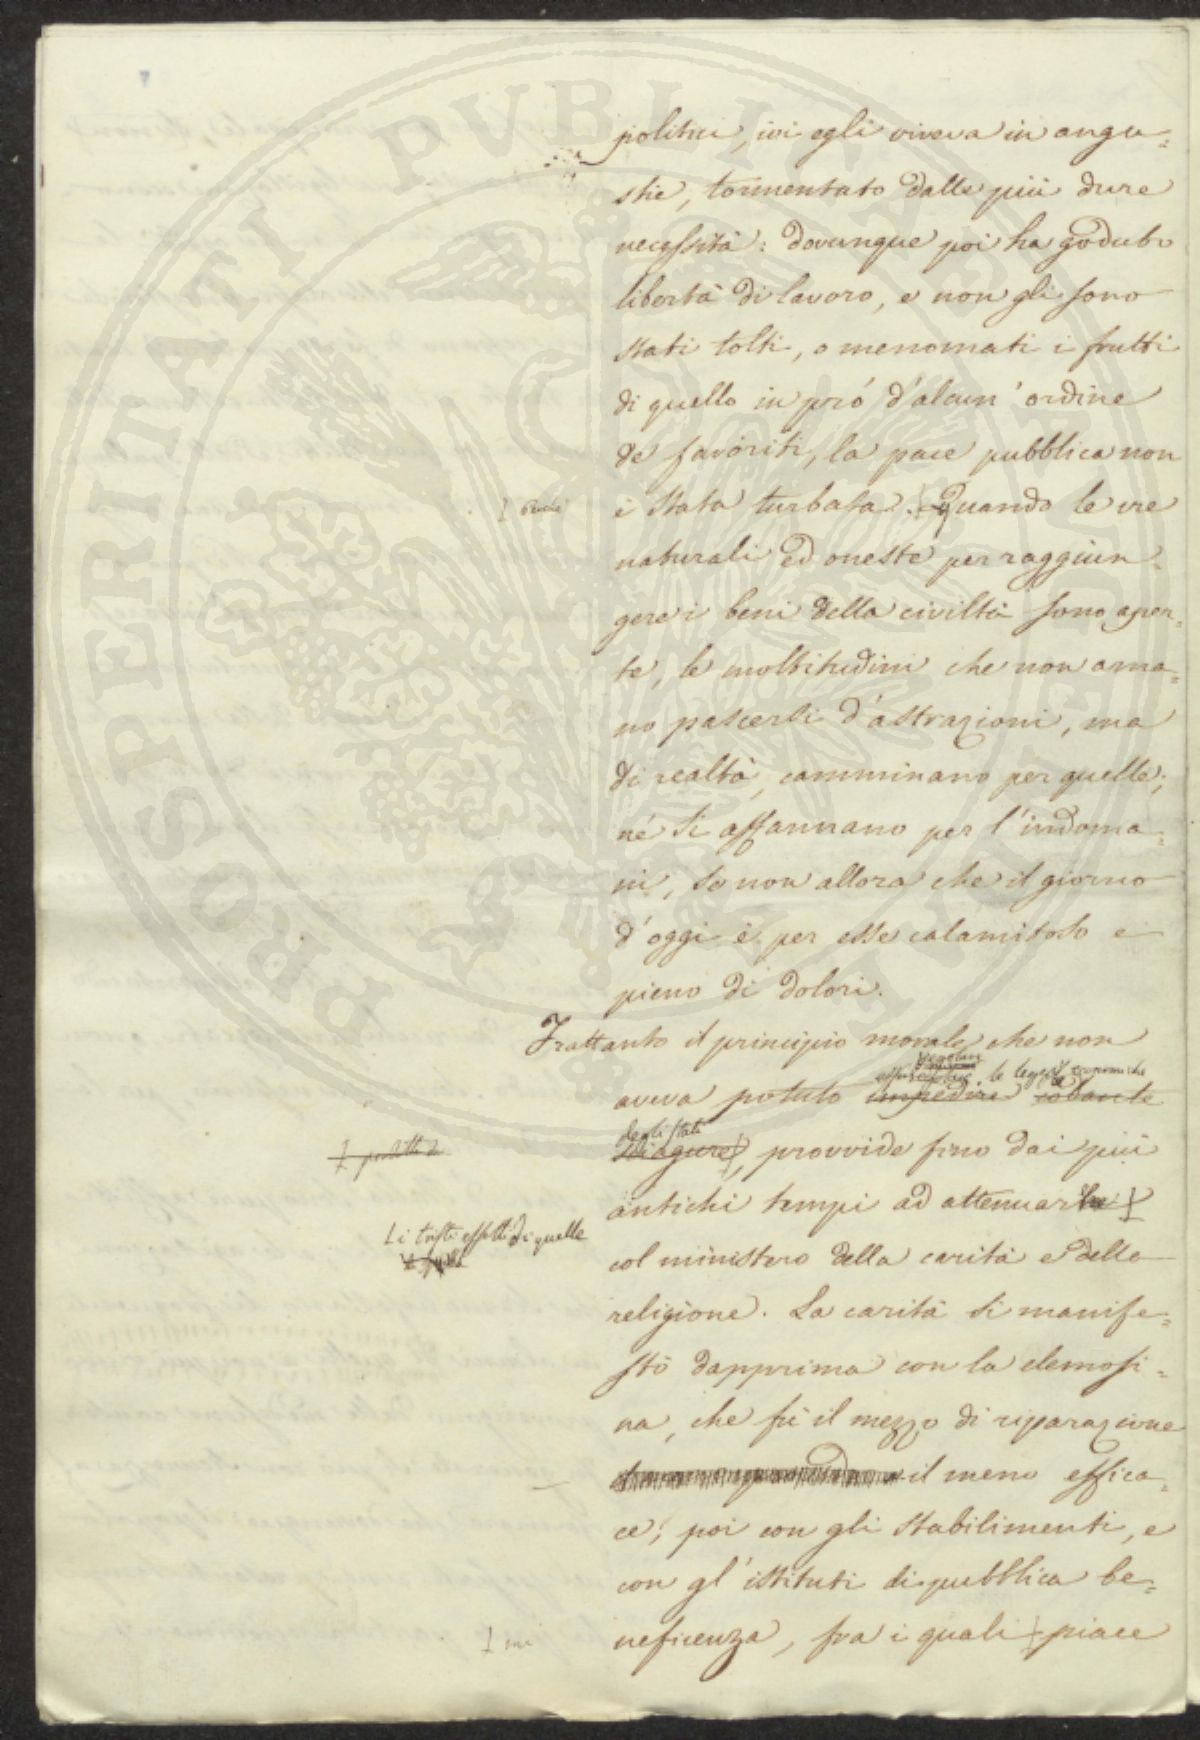 politici, ivi egli viveva in angu=
stie, tormentato dalle più dure
necessità: dovunque poi ha goduto
libertà di lavoro, e non gli sono
stati tolti, o menomati i frutti
di quello in pró d'alcun' ordine
de favoriti, la pace pubblica non
è stata turbata. Quando le vie
naturali ed oneste per raggiun=
gere i beni della civiltà sono aper=
te, le moltitudini che non ama=
no pascersi d'astrazioni, ma
di realtà, camminano per quelle;
né si affannano per l'indoma=
ni, se non allora che il giorno
d'oggi è per esse calamitoso e
pieno di dolori.
Frattanto il principio morale, che non
regolare le leggi economiche
aveva potuto impedire cotante
degli stati
sciagure, provvide fino dai più
antichi tempi ad attenuar
Li tristi effetti di quelle
col ministero della carità e della
religione. La carità si manife=
stò dapprima con la elemosi=
na, che fù il mezzo di riparazione
il meno effica=
ce; poi con gli stabilimenti, e
con gl'istituti di pubblica be=
neficenza, fra i quali piace
mi
PROSPERITATI PVBLICAE